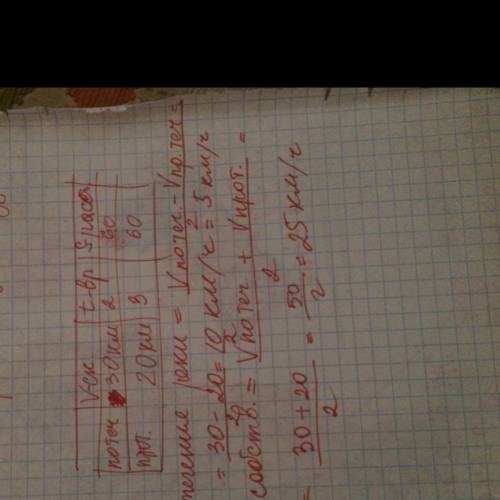 V ск t вр S расст
по теч 30 км 2 60
прот. 20 км 3 60
течение реки = V по теч - V по теч / 2 =
= 30 - 20 / 2 = 10 / 2 км/ч = 5 км/ч
собств. = V по теч + V прот. / 2 =
= 30 + 20 / 2 = 50 / 2 = 25 км/ч